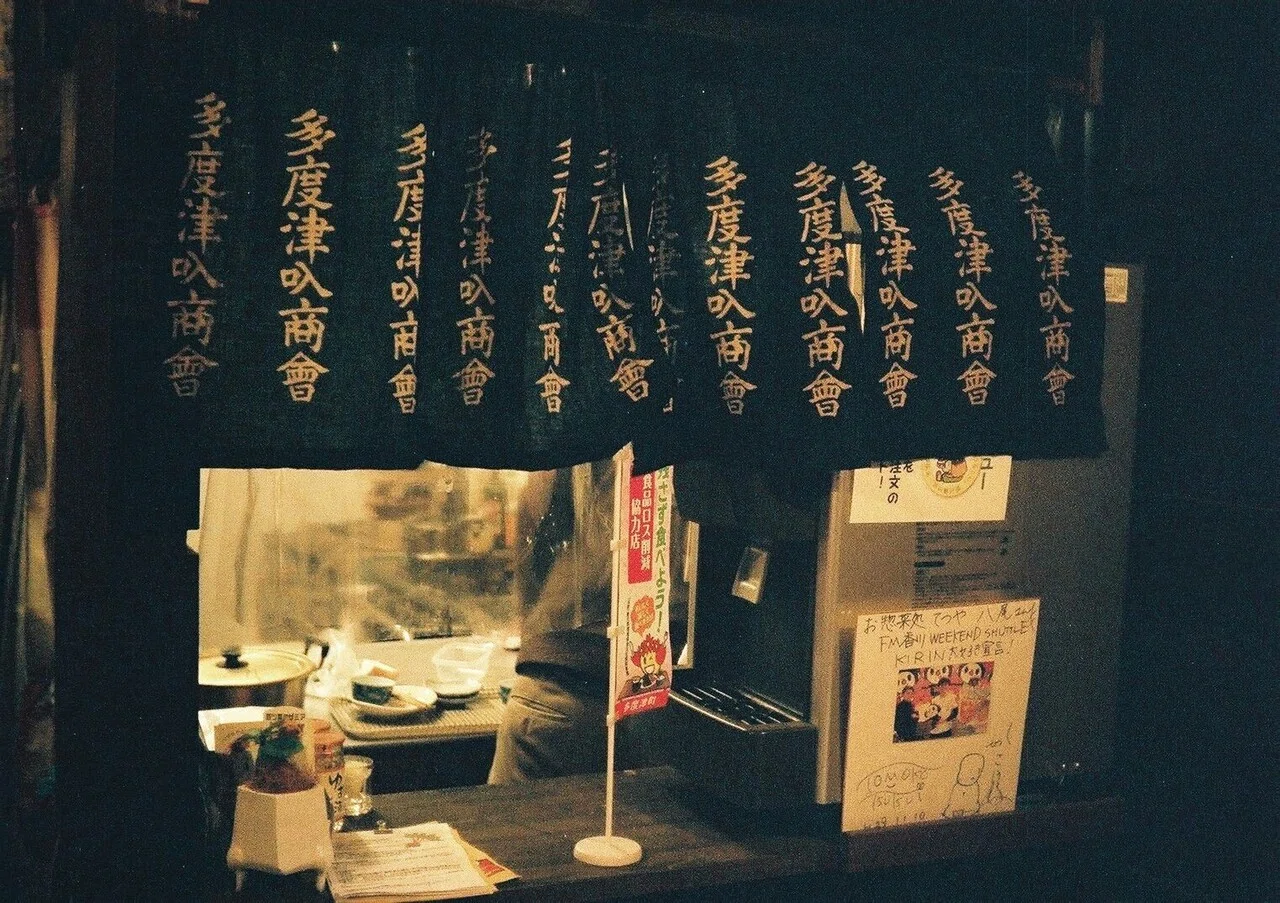 多度津叺商會
多度津叺商會
多度津叺商會
多度津叺商會
多度津叺商會
多度津叺商會
多度津叺商會
多度津叺商會
多度津叺商會
多度津叺商會
多度津叺商會
ュー
を
注文の
ト！
さず食べよう！
食品ロス削減
協力店
多度津町
お惣菜処 てつや 八尾
FM香川 WEEKEND SHUTTLE
KIRIN 大好き宣言！
TOMOKO
ゆず